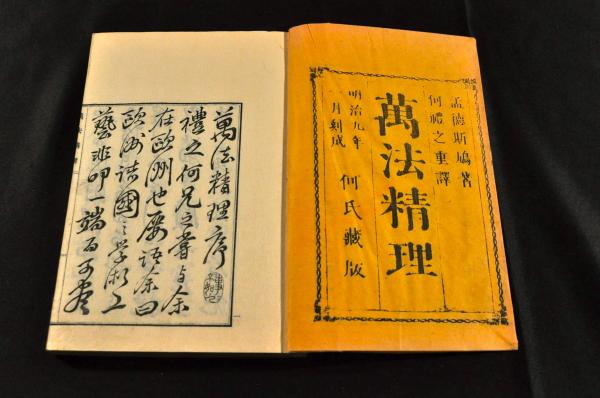 孟德斯鳩著
何禮之重譯
萬法精理
明治九年
一月刻成
何氏藏版
萬法精理序
禮之何兄之嘗与余
在歐洲也屡語余曰
歐洲諸國之学術工
藝非一端而可尽